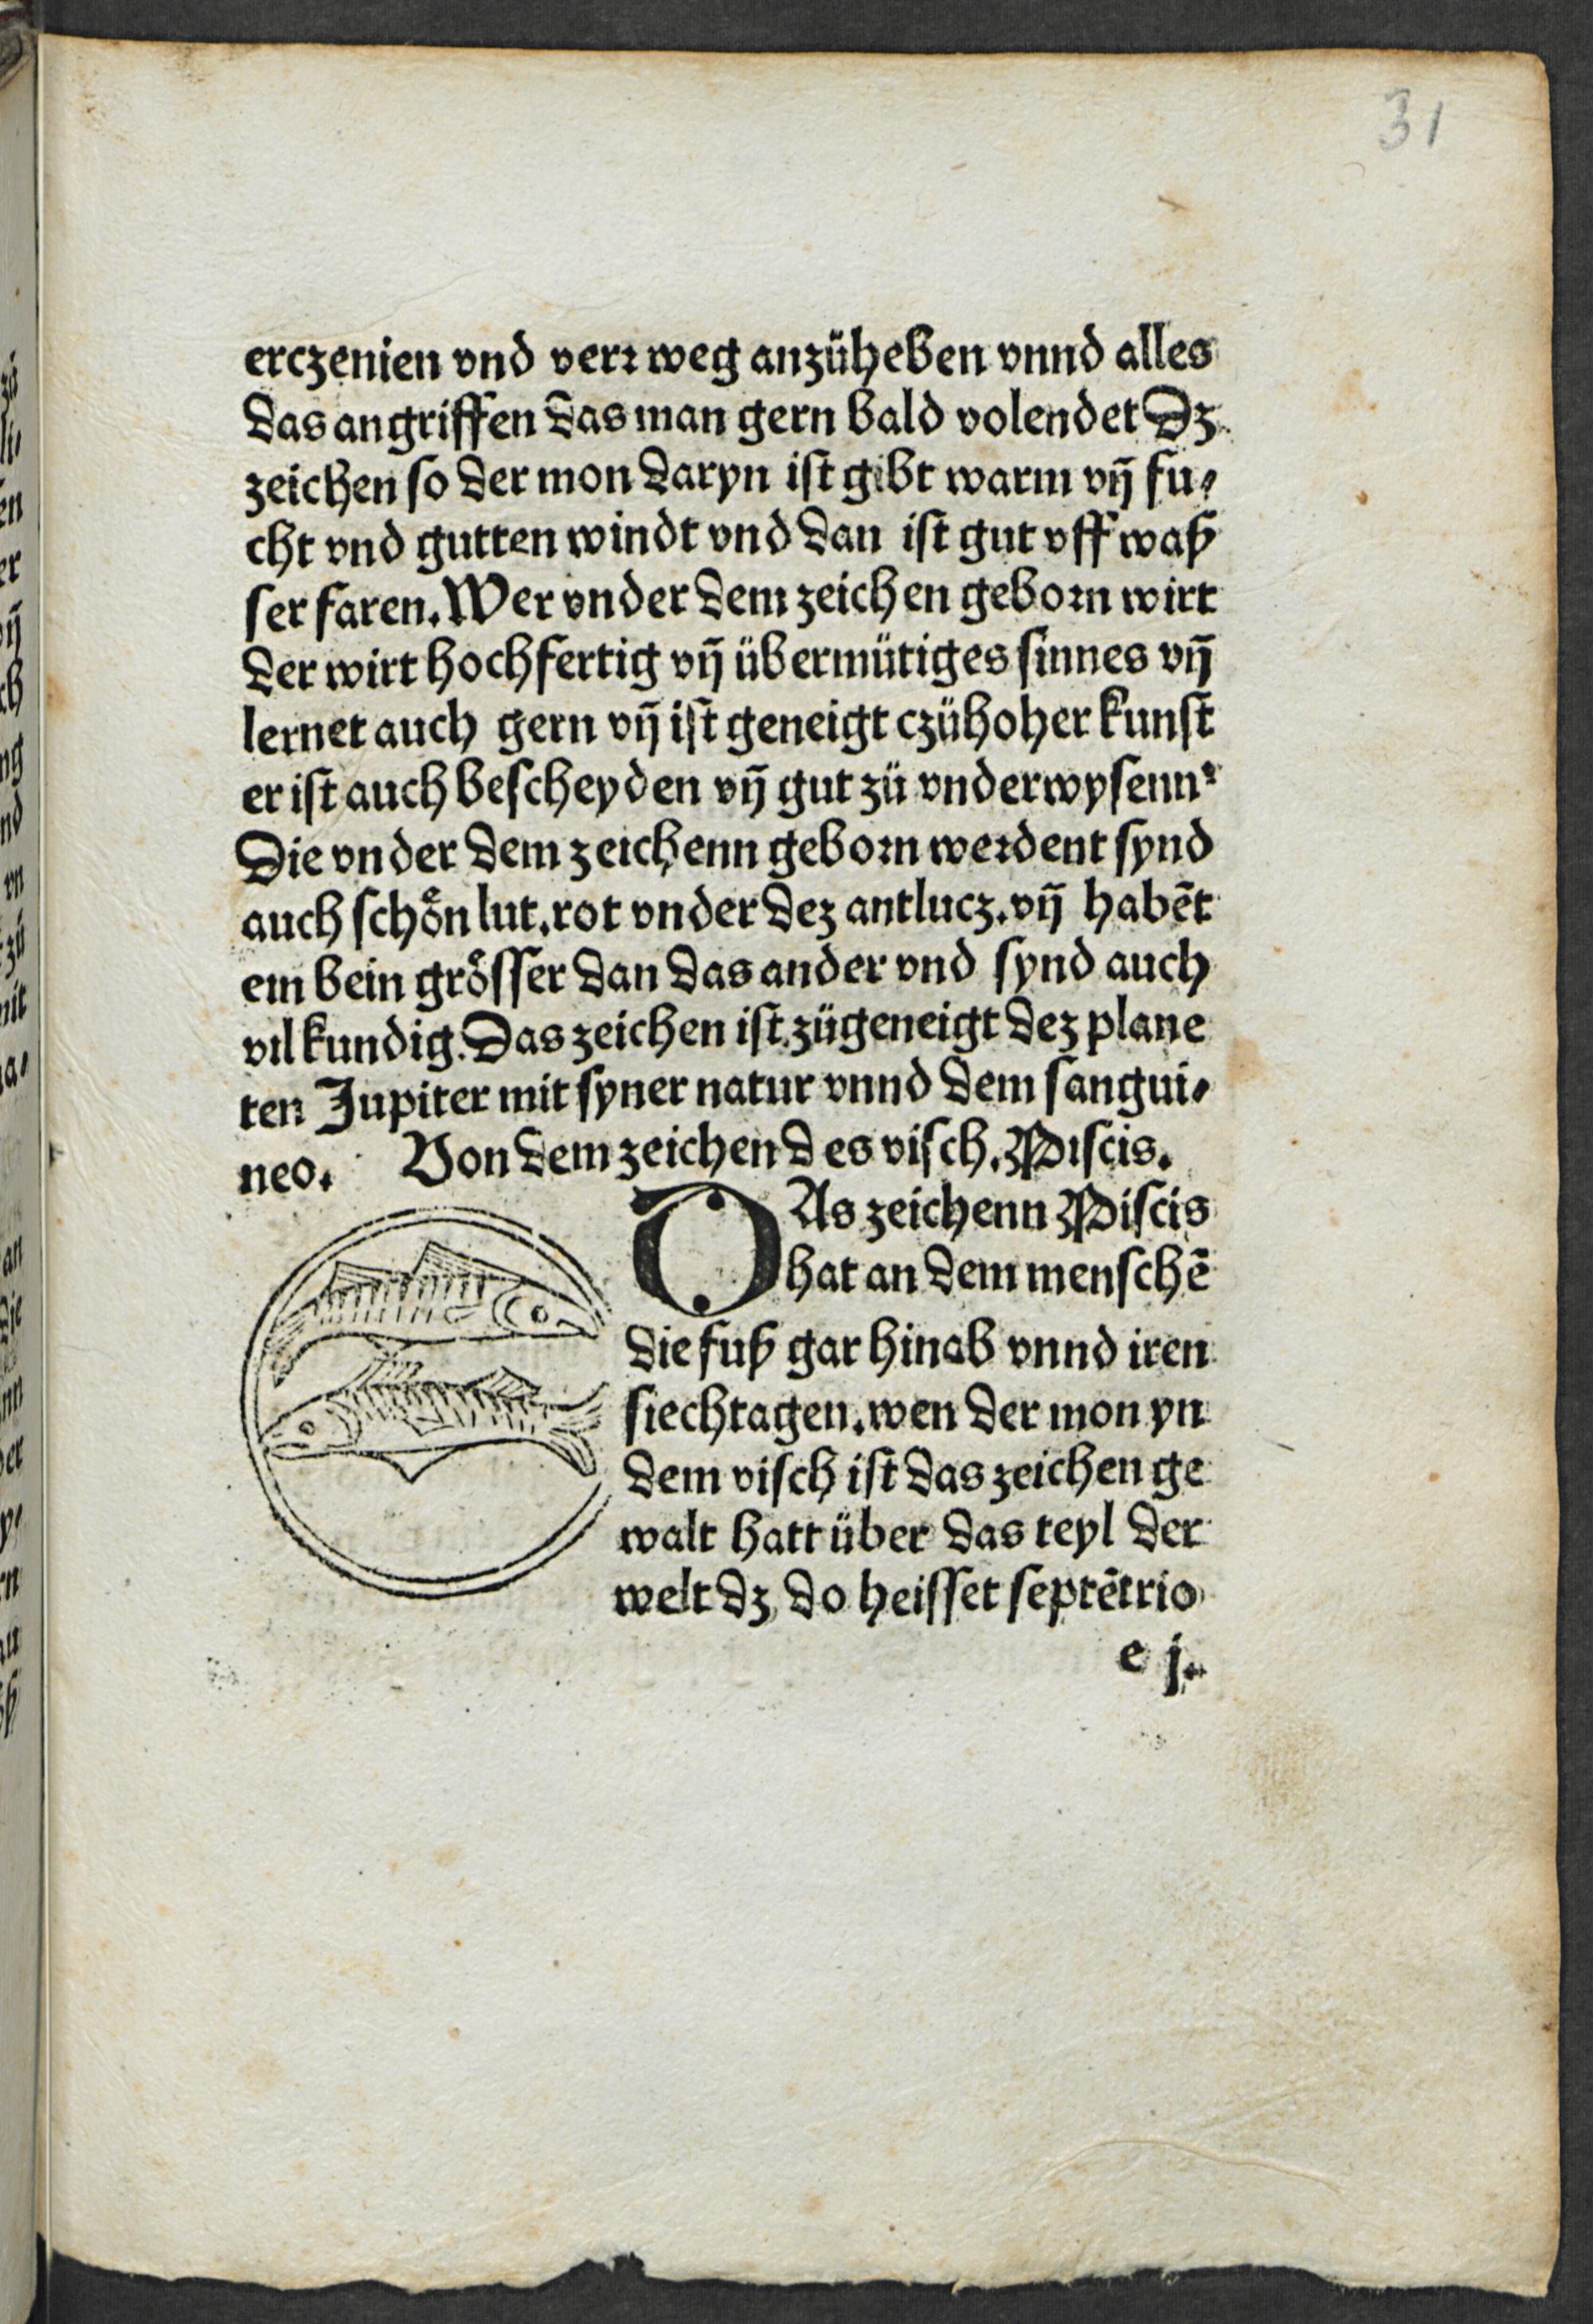 31
erczenien vnd verꝛ weg anzüheben vnnd alles
das angriffen das man gern bald volendet Dz
zeichen so der mon daryn ist gibt warm vñ fu⸗
cht vnd gutten windt vnd dan ist gut vff waß
ser faren. Wer vnder dem zeichen geboꝛn wirt
der wirt hochfertig vñ übermütiges sinnes vñ
lernet auch gern vñ ist geneigt czü hoher kunst
er ist auch bescheyden vñ gut zü vnderwysenn
Die vnder dem zeichenn geboꝛn weꝛdent synd
auch schoͤn lut. rot vnder dez antlucz. vñ habēt
ein bein groͤsser dan das ander vnd synd auch
vil kundig. Das zeichen ist zügeneigt dez plane
ten Jupiter mit syner natur vnnd dem sangui⸗
neo. Von dem zeichen des visch. Piscis.
DAs zeichenn Piscis
hat an dem menschē
die fuß gar hinab vnnd iren
siechtagen. wen der mon yn
dem visch ist das zeichen ge
walt hatt über das teyl der
welt dz do heisset septētrio
e j.